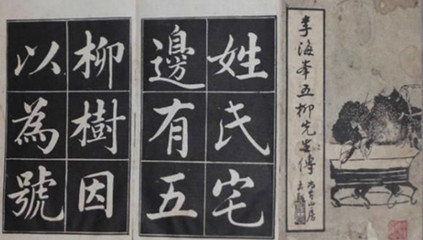 姓氏宅
邊有五
柳樹因
以為號
李海峯五柳先生傳